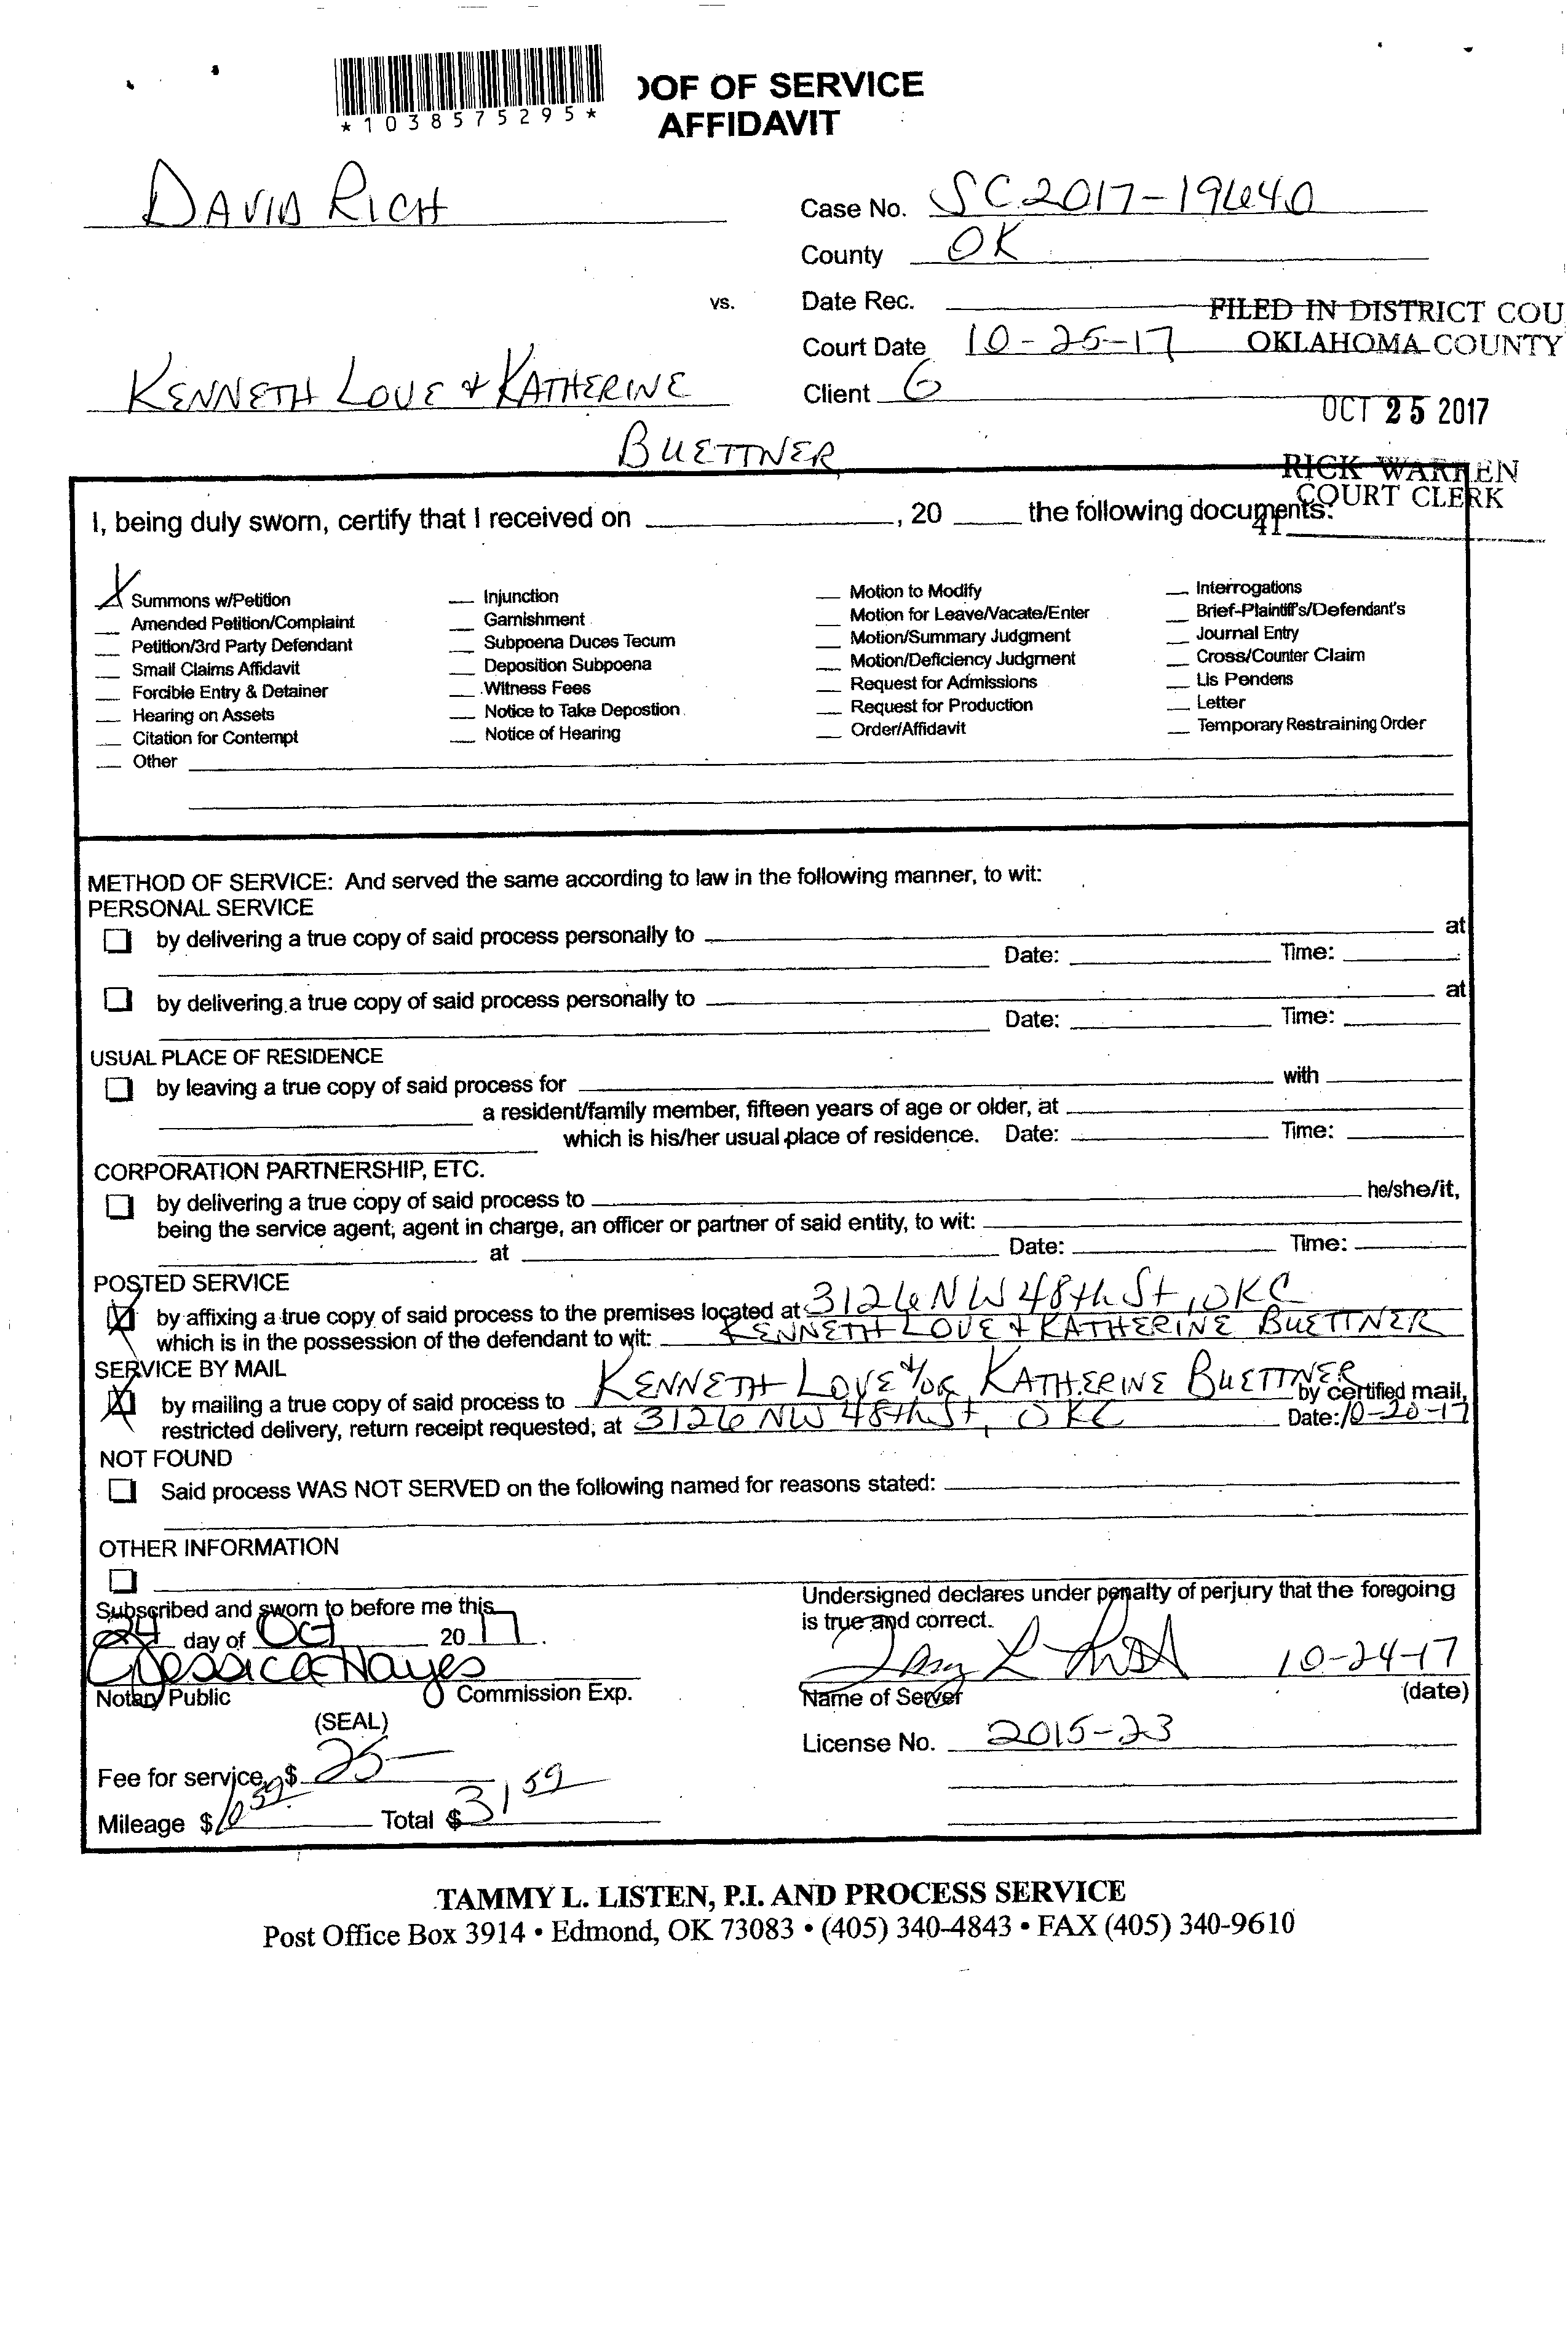 *1038575295*
OOF OF SERVICE
AFFIDAVIT
DAVID RICH
Case No. SC2017-19640
County OK
vs.
Date Rec.
FILED IN DISTRICT COU
Court Date 10-25-17
OKLAHOMA COUNTY
KENNETH LOVE & KATHERINE
Client 6
OCT 25 2017
BUETTNER
RICK WARREN
COURT CLERK
I, being duly sworn, certify that I received on ________, 20 ____ the following documents:
41
X Summons w/Petition
Amended Petition/Complaint
Petition/3rd Party Defendant
Small Claims Affidavit
Forcible Entry & Detainer
Hearing on Assets
Citation for Contempt
Other
Injunction
Garnishment
Subpoena Duces Tecum
Deposition Subpoena
Witness Fees
Notice to Take Depostion
Notice of Hearing
Motion to Modify
Motion for Leave/Vacate/Enter
Motion/Summary Judgment
Motion/Deficiency Judgment
Request for Admissions
Request for Production
Order/Affidavit
Interrogations
Brief-Plaintiff's/Defendant's
Journal Entry
Cross/Counter Claim
Lis Pendens
Letter
Temporary Restraining Order
METHOD OF SERVICE: And served the same according to law in the following manner, to wit:
PERSONAL SERVICE
by delivering a true copy of said process personally to at
Date: Time:
by delivering a true copy of said process personally to at
Date: Time:
USUAL PLACE OF RESIDENCE
by leaving a true copy of said process for with
a resident/family member, fifteen years of age or older, at
which is his/her usual place of residence. Date: Time:
CORPORATION PARTNERSHIP, ETC.
by delivering a true copy of said process to he/she/it,
being the service agent, agent in charge, an officer or partner of said entity, to wit:
at Date: Time:
POSTED SERVICE
X by affixing a true copy of said process to the premises located at 3126 NW 48th St, OKC
which is in the possession of the defendant to wit: KENNETH LOVE & KATHERINE BUETTNER
SERVICE BY MAIL
X by mailing a true copy of said process to KENNETH LOVE &/OR KATHERINE BUETTNER by certified mail,
restricted delivery, return receipt requested, at 3126 NW 48th St, OKC Date: 10-20-17
NOT FOUND
Said process WAS NOT SERVED on the following named for reasons stated:
OTHER INFORMATION
Subscribed and sworn to before me this
24 day of Oct 20 17.
Jessica Hayes
Notary Public Commission Exp.
(SEAL)
Fee for service $ 25—
Mileage $ 6 59 Total $ 31 59
Undersigned declares under penalty of perjury that the foregoing
is true and correct.
10-24-17
Name of Server (date)
License No. 2015-23
TAMMY L. LISTEN, P.I. AND PROCESS SERVICE
Post Office Box 3914 • Edmond, OK 73083 • (405) 340-4843 • FAX (405) 340-9610